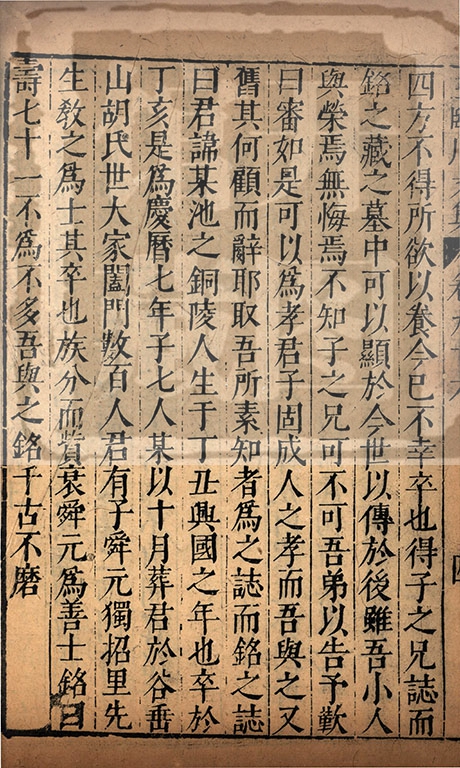 四方不得所欲以養今已不幸卒也得子之兄誌而
銘之藏之墓中可以顯於今世以傳於後雖吾小人
與榮焉無悔焉不知子之兄可不可吾弟以告予歎
曰審如是可以為孝君子固成人之孝而吾與之又
舊其何顧而辭耶取吾所素知者為之誌而銘之誌
曰君諱某池之銅陵人生于丁丑興國之年也卒於
丁亥是為慶曆七年子七人某以十月葬君於谷垂
山胡氏世大家闔門數百人君有子舜元獨招里先
生教之為士其卒也族分而貲衰舜元為善士銘曰
壽七十一不為不多吾與之銘千古不磨